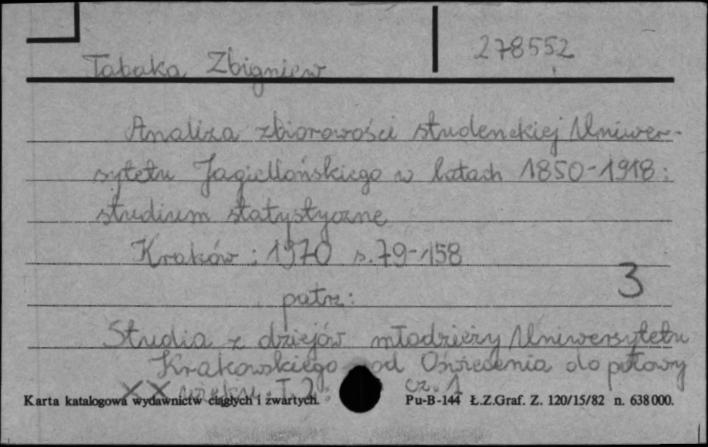 278552
Tabaka Zbigniew
Analiza zbiorowości studenckiej Uniwer-
sytetu Jagiellońskiego w latach 1850-1918:
studium statystyczne
Kraków : 1970 s. 79-158
3
patrz:
Studia z dziejów młodzieży Uniwersytetu
Krakowskiego od Oświecenia do połowy
XX wieku. T. 2: cz. 1
Karta katalogowa wydawnictw ciągłych i zwartych. Pu-B-144 Ł.Z.Graf. Z. 120/15/82 n. 638 000.